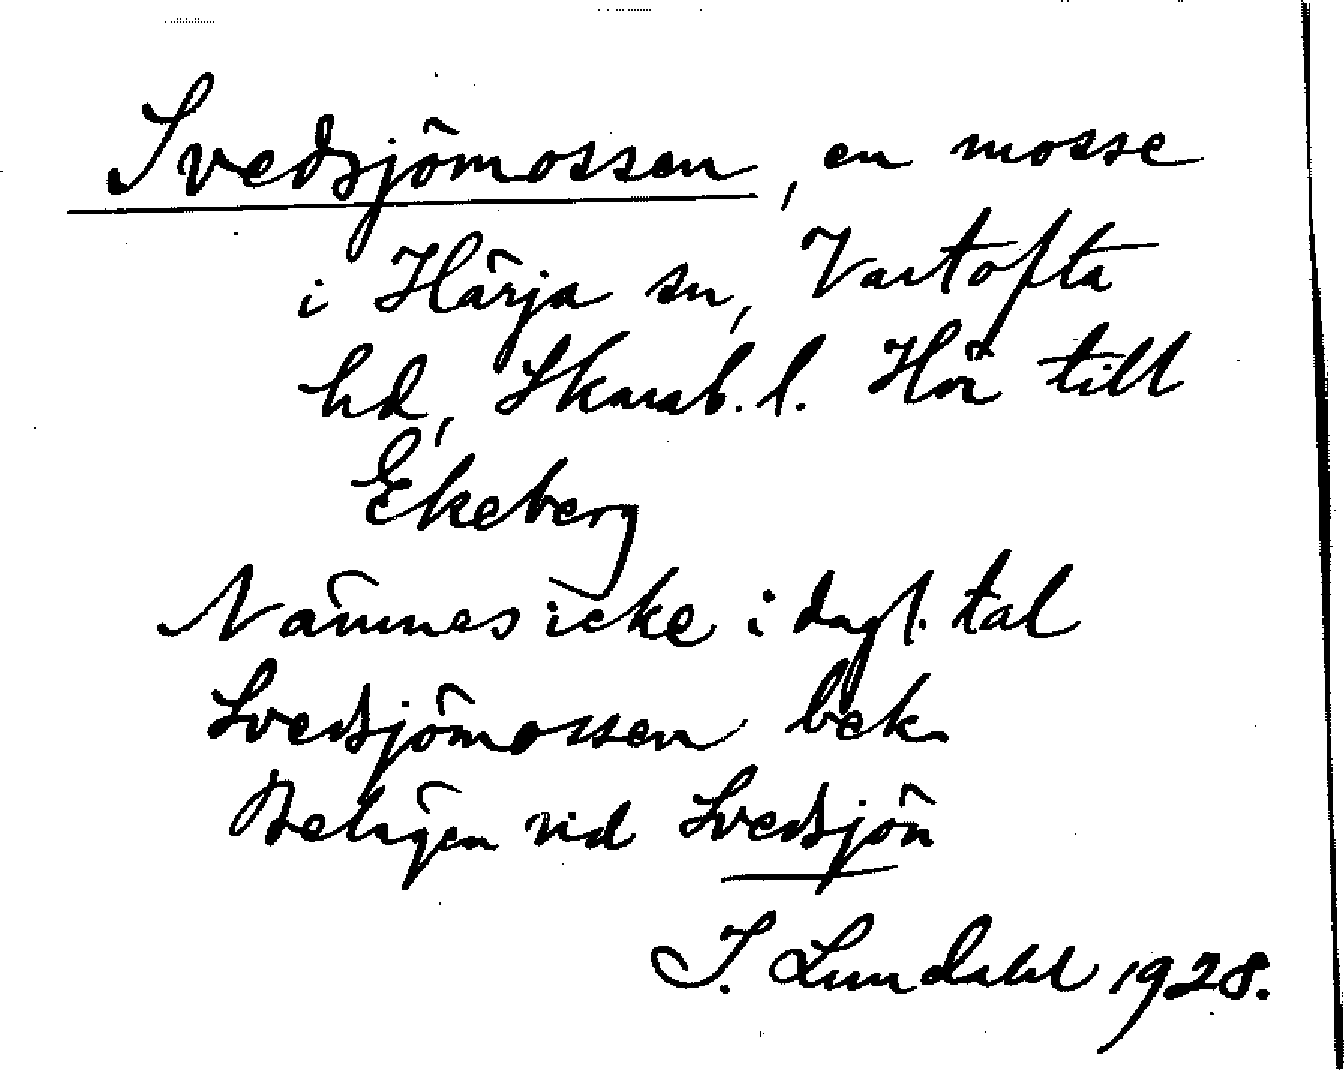 Svedsjömossen, en mosse
i Härja sn, Vartofta
hd, Skarab. l. Hör till
Ekeberg
Nämnes icke i dagl. tal
Svedsjömossen bek.
Belägen vid Svedsjön
I. Lundahl 1928.